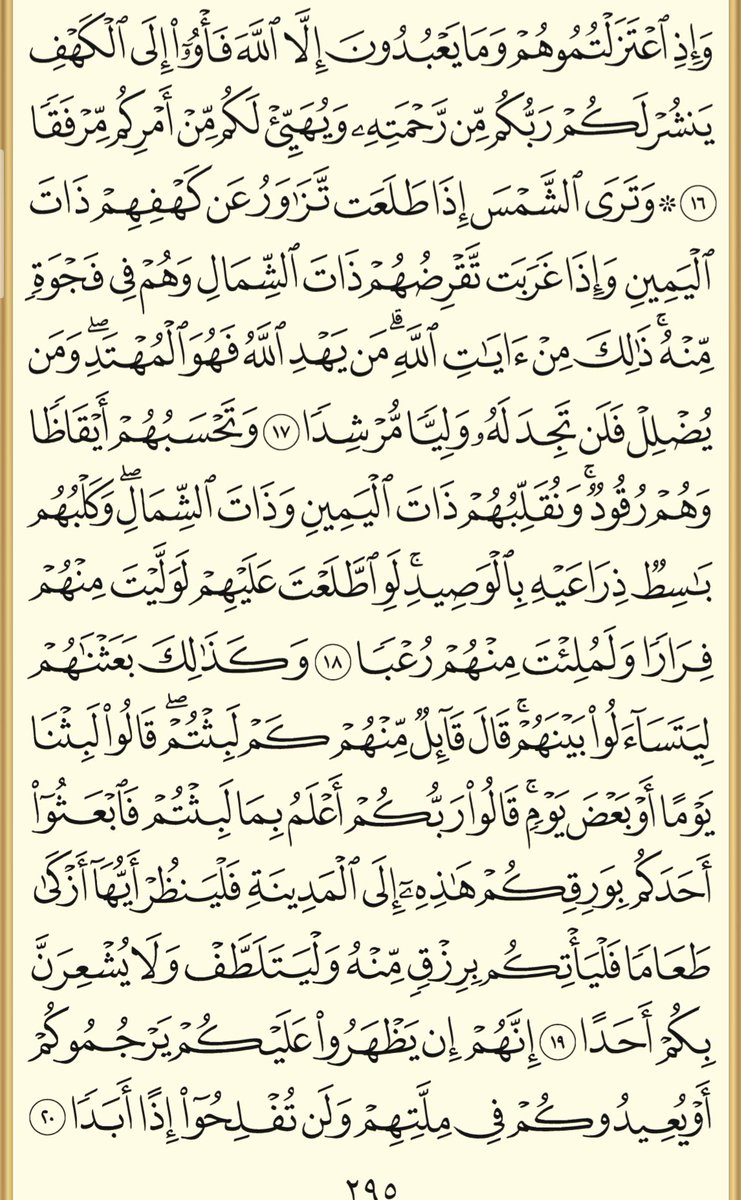 وَإِذِ ٱعْتَزَلْتُمُوهُمْ وَمَا يَعْبُدُونَ إِلَّا ٱللَّهَ فَأْوُۥٓا۟ إِلَى ٱلْكَهْفِ
يَنشُرْ لَكُمْ رَبُّكُم مِّن رَّحْمَتِهِۦ وَيُهَيِّئْ لَكُم مِّنْ أَمْرِكُم مِّرْفَقًا
١٦ ۞ وَتَرَى ٱلشَّمْسَ إِذَا طَلَعَت تَّزَٰوَرُ عَن كَهْفِهِمْ ذَاتَ
ٱلْيَمِينِ وَإِذَا غَرَبَت تَّقْرِضُهُمْ ذَاتَ ٱلشِّمَالِ وَهُمْ فِى فَجْوَةٍ
مِّنْهُ ۚ ذَٰلِكَ مِنْ ءَايَٰتِ ٱللَّهِ ۗ مَن يَهْدِ ٱللَّهُ فَهُوَ ٱلْمُهْتَدِ ۖ وَمَن
يُضْلِلْ فَلَن تَجِدَ لَهُۥ وَلِيًّا مُّرْشِدًا ١٧ وَتَحْسَبُهُمْ أَيْقَاظًا
وَهُمْ رُقُودٌ ۚ وَنُقَلِّبُهُمْ ذَاتَ ٱلْيَمِينِ وَذَاتَ ٱلشِّمَالِ ۖ وَكَلْبُهُم
بَٰسِطٌ ذِرَاعَيْهِ بِٱلْوَصِيدِ ۚ لَوِ ٱطَّلَعْتَ عَلَيْهِمْ لَوَلَّيْتَ مِنْهُمْ
فِرَارًا وَلَمُلِئْتَ مِنْهُمْ رُعْبًا ١٨ وَكَذَٰلِكَ بَعَثْنَٰهُمْ
لِيَتَسَآءَلُوا۟ بَيْنَهُمْ ۚ قَالَ قَآئِلٌ مِّنْهُمْ كَمْ لَبِثْتُمْ ۖ قَالُوا۟ لَبِثْنَا
يَوْمًا أَوْ بَعْضَ يَوْمٍ ۚ قَالُوا۟ رَبُّكُمْ أَعْلَمُ بِمَا لَبِثْتُمْ فَٱبْعَثُوٓا۟
أَحَدَكُم بِوَرِقِكُمْ هَٰذِهِۦٓ إِلَى ٱلْمَدِينَةِ فَلْيَنظُرْ أَيُّهَآ أَزْكَىٰ
طَعَامًا فَلْيَأْتِكُم بِرِزْقٍ مِّنْهُ وَلْيَتَلَطَّفْ وَلَا يُشْعِرَنَّ
بِكُمْ أَحَدًا ١٩ إِنَّهُمْ إِن يَظْهَرُوا۟ عَلَيْكُمْ يَرْجُمُوكُمْ
أَوْ يُعِيدُوكُمْ فِى مِلَّتِهِمْ وَلَن تُفْلِحُوٓا۟ إِذًا أَبَدًا ٢٠
٢٩٥